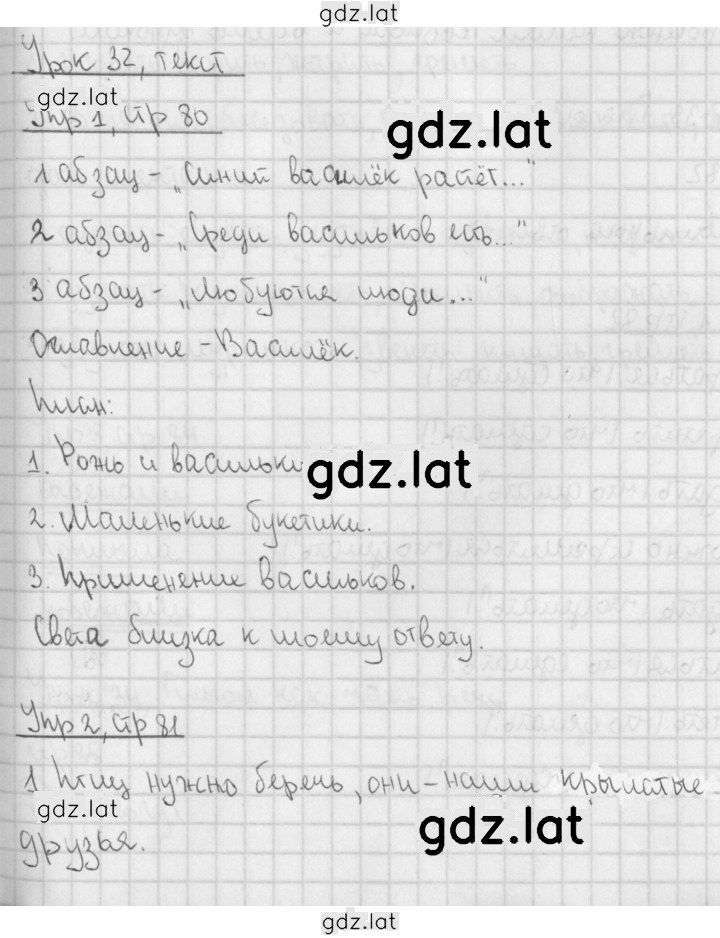 gdz.lat
Урок 32, текст
gdz.lat
Упр 1, стр 80
gdz.lat
1 абзац - „Синий василёк растёт..."
2 абзац - „Среди васильков есть..."
3 абзац - „Любуются люди..."
Оглавление - Василёк.
План:
1. Рожь и васильки
gdz.lat
2. Маленькие букетики.
3. Применение васильков.
Света близка к моему ответу.
Упр 2, стр 81
1 Птиц нужно беречь, они - наши крылатые
gdz.lat
друзья.
gdz.lat
gdz.lat